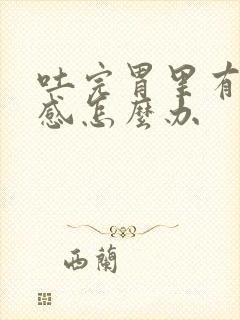 吐完胃里有
感怎麼办
西蘭